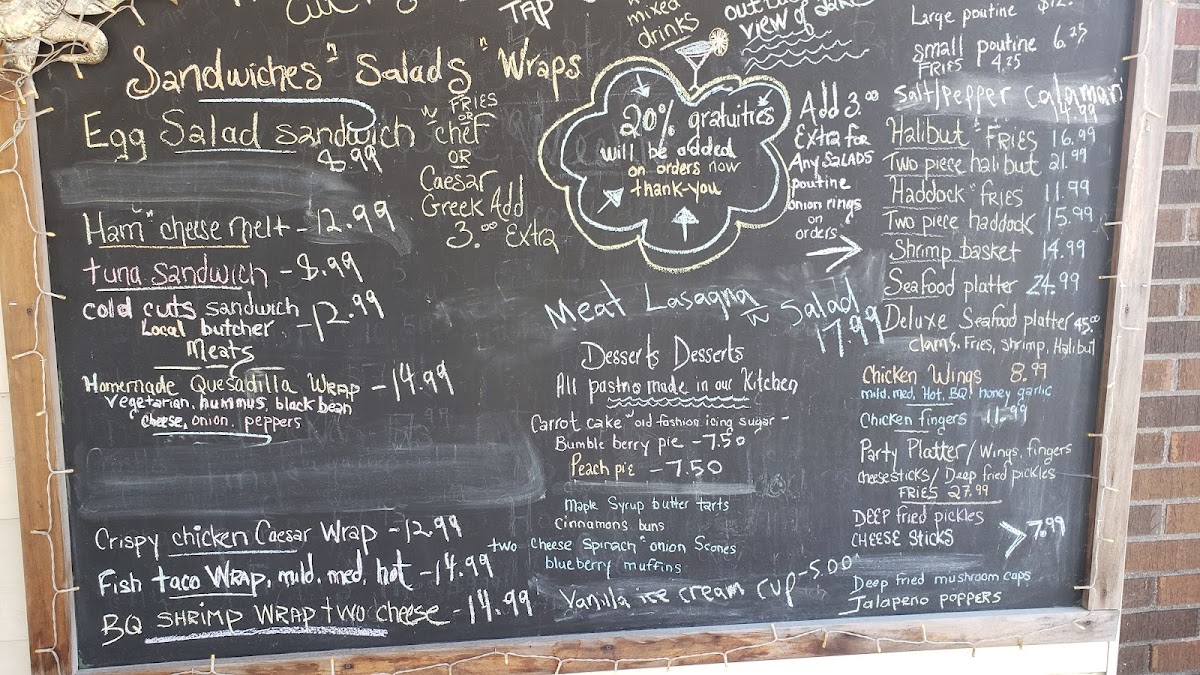 TAP
mixed
drinks
view of
Sandwiches" Salads " Wraps
Egg Salad sandwich
8.99
w FRIES
OR
chef
OR
Caesar
Greek Add
3.00 Extra
Ham " cheese melt - 12.99
tuna sandwich - 8.99
cold cuts sandwich
Local butcher - 12.99
Meats
Homemade Quesadilla Wrap - 14.99
Vegetarian, hummus, black bean
cheese, onion, peppers
Crispy chicken Caesar Wrap - 12.99
Fish taco WRAP, mild, med, hot - 14.99
BQ SHRIMP WRAP two CHEESE - 14.99
20% gratuities
will be added
on orders now
thank-you
Add 3.00
Extra for
Any SALADS
poutine
onion rings
on
orders
Meat Lasagna w Salad
17.99
Desserts Desserts
All pastries made in our Kitchen
Carrot cake " old fashion icing sugar -
Bumble berry pie - 7.50
Peach pie - 7.50
Maple Syrup butter tarts
Cinnamons buns
two cheese spinach " onion Scones
blueberry muffins
Vanilla ice cream cup - 5.00
Large poutine
small poutine 6.25
FRIES 4.25
Salt/Pepper calamari
14.99
Halibut " FRIES 16.99
Two piece halibut 21.99
Haddock " FRIES 11.99
Two piece haddock 15.99
Shrimp basket 14.99
Seafood platter 24.99
Deluxe Seafood platter 45.00
clams, Fries, shrimp, Halibut
Chicken Wings 8.99
mild, med, Hot, BQ, honey garlic
Chicken fingers 11.99
Party Platter / Wings, fingers
cheesesticks / Deep fried pickles
FRIES 27.99
DEEP fried pickles
CHEESE Sticks > 7.99
Deep fried mushroom caps
Jalapeno poppers